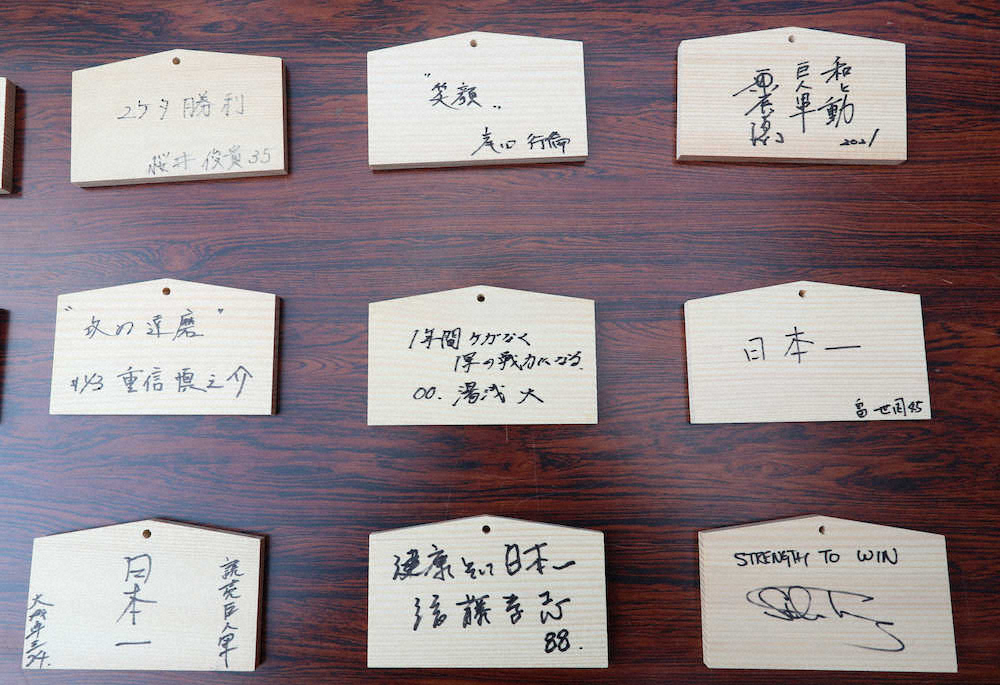 2ケタ勝利
桜井 俊貴 35
"笑顔"
岸田 行倫
和と動
巨人軍
原辰徳
2021
"攻め 達磨"
#43 重信 慎之介
1年間ケガなく
1軍の戦力になる.
00. 湯浅 大
日本一
畠 世周 45
読売巨人軍
日本一
大城卓三
24.
健康そして日本一
後藤孝志
88.
STRENGTH TO WIN